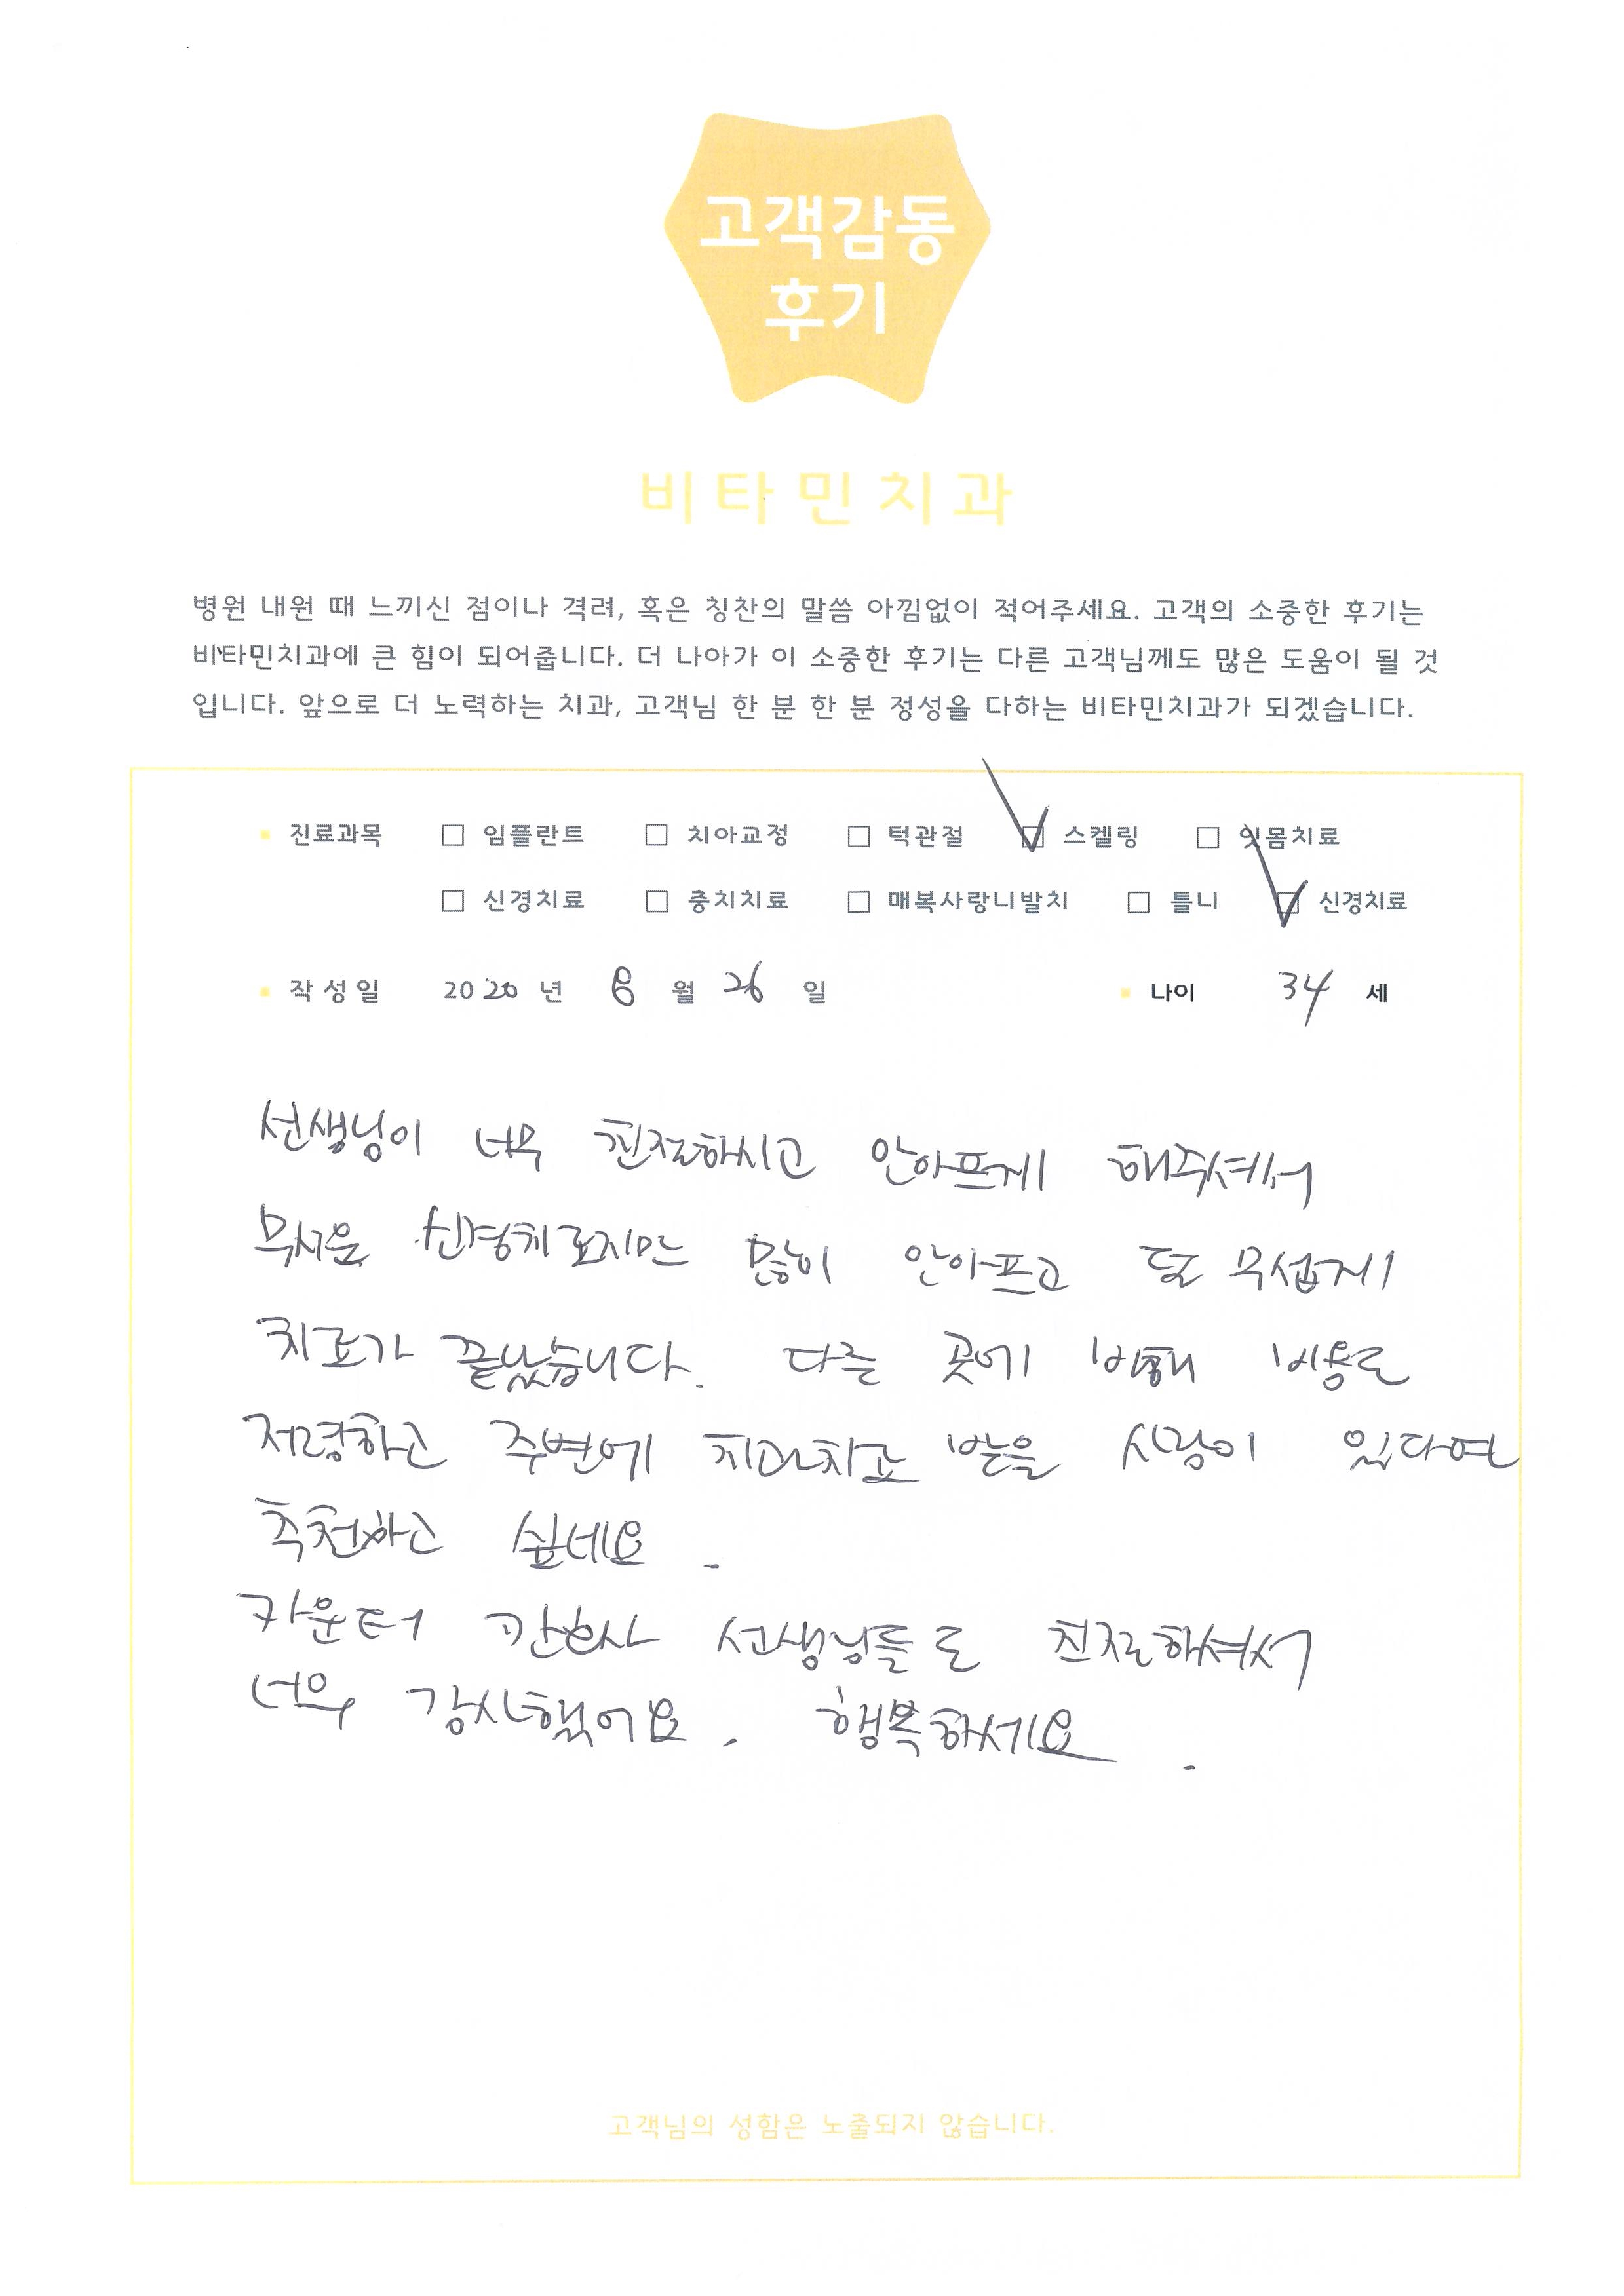 고객감동
후기
비타민치과
병원 내원 때 느끼신 점이나 격려, 혹은 칭찬의 말씀 아낌없이 적어주세요. 고객의 소중한 후기는
비타민치과에 큰 힘이 되어줍니다. 더 나아가 이 소중한 후기는 다른 고객님께도 많은 도움이 될 것
입니다. 앞으로 더 노력하는 치과, 고객님 한 분 한 분 정성을 다하는 비타민치과가 되겠습니다.
진료과목 □ 임플란트 □ 치아교정 □ 턱관절 ☑ 스켈링 □ 잇몸치료
□ 신경치료 □ 충치치료 □ 매복사랑니발치 □ 틀니 ☑ 신경치료
작성일 2020 년 8 월 26 일 나이 34 세
선생님이 너무 친절하시고 안아프게 해주셔서
무서운 신경치료지만 많이 안아프고 덜 무섭게
치료가 끝났습니다. 다른 곳에 비해 비용도
저렴하고 주변에 치과치료 받을 사람이 있다면
추천하고 싶네요.
카운터 간호사 선생님들도 친절하셔서
너무 감사했어요. 행복하세요.
고객님의 성함은 노출되지 않습니다.